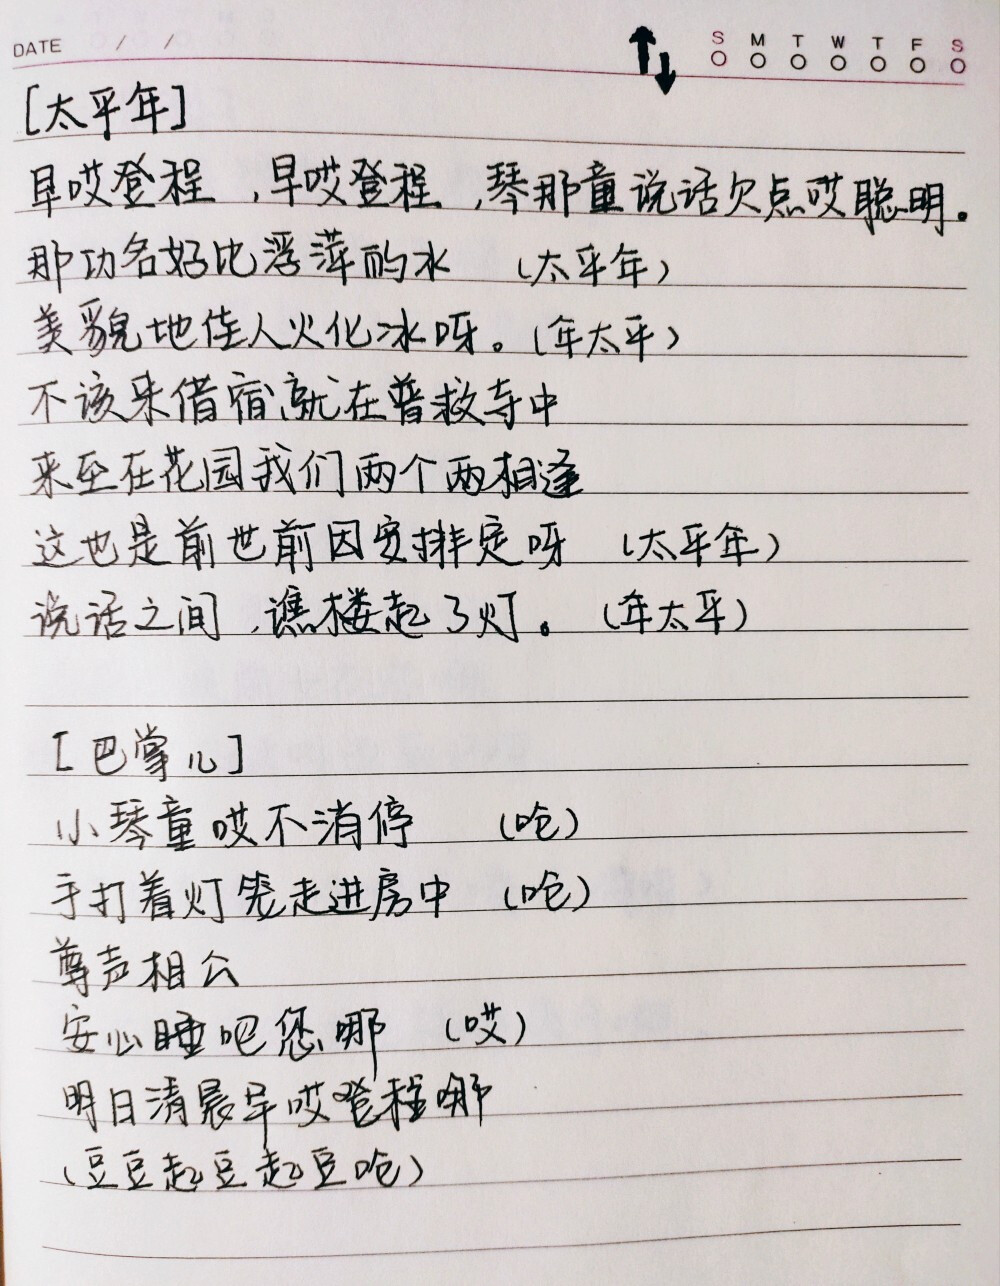 DATE / / S M T W T F S
[太平年]
早哎登程,早哎登程,琴那童说话欠点哎聪明。
那功名好比浮萍的水 (太平年)
美貌地佳人火化冰呀。(年太平)
不该来借宿,就在普救寺中
来至在花园我们两个两相逢
这也是前世前因安排定呀 (太平年)
说话之间,谯楼起了灯。 (年太平)
[巴掌儿]
小琴童哎不消停 (呛)
手打着灯笼走进房中 (呛)
尊声相公
安心睡吧您哪 (哎)
明日清晨早哎登程哪
(豆豆起豆起豆呛)